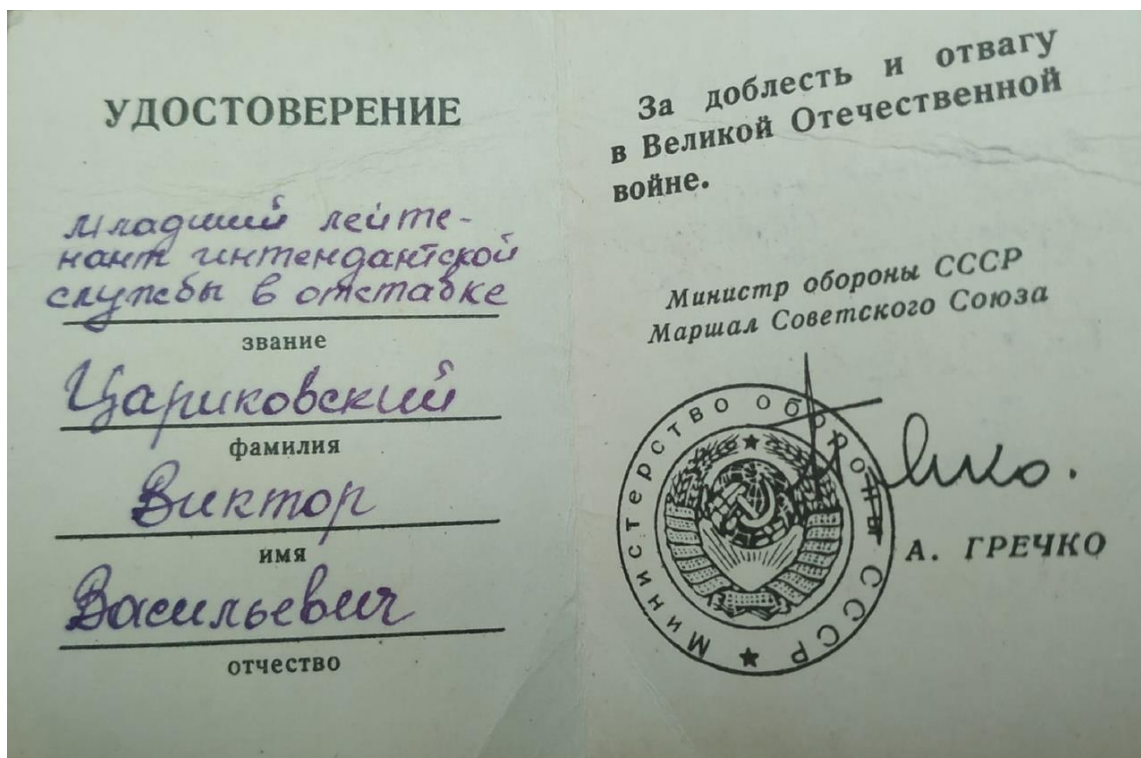 УДОСТОВЕРЕНИЕ
младший лейте-
нант интендантской
службы в отставке
звание
Цариковский
фамилия
Виктор
имя
Васильевич
отчество
За доблесть и отвагу
в Великой Отечественной
войне.
Министр обороны СССР
Маршал Советского Союза
Министерство обороны СССР
А. ГРЕЧКО